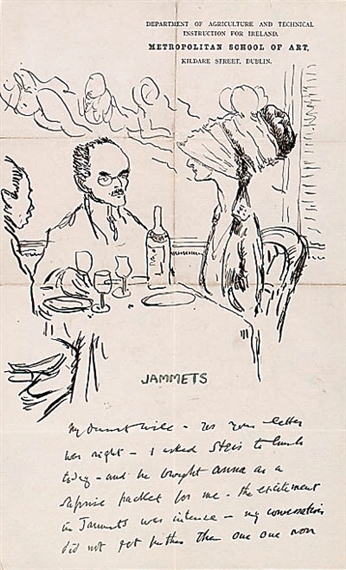 DEPARTMENT OF AGRICULTURE AND TECHNICAL
INSTRUCTION FOR IRELAND.
METROPOLITAN SCHOOL OF ART,
KILDARE STREET, DUBLIN.
JAMMETS
My letter
was right - I asked to lunch
today - and he brought anna as a
surprise packet for me - the excitement
in Jammets was intense - my conversation
did not get further than one one